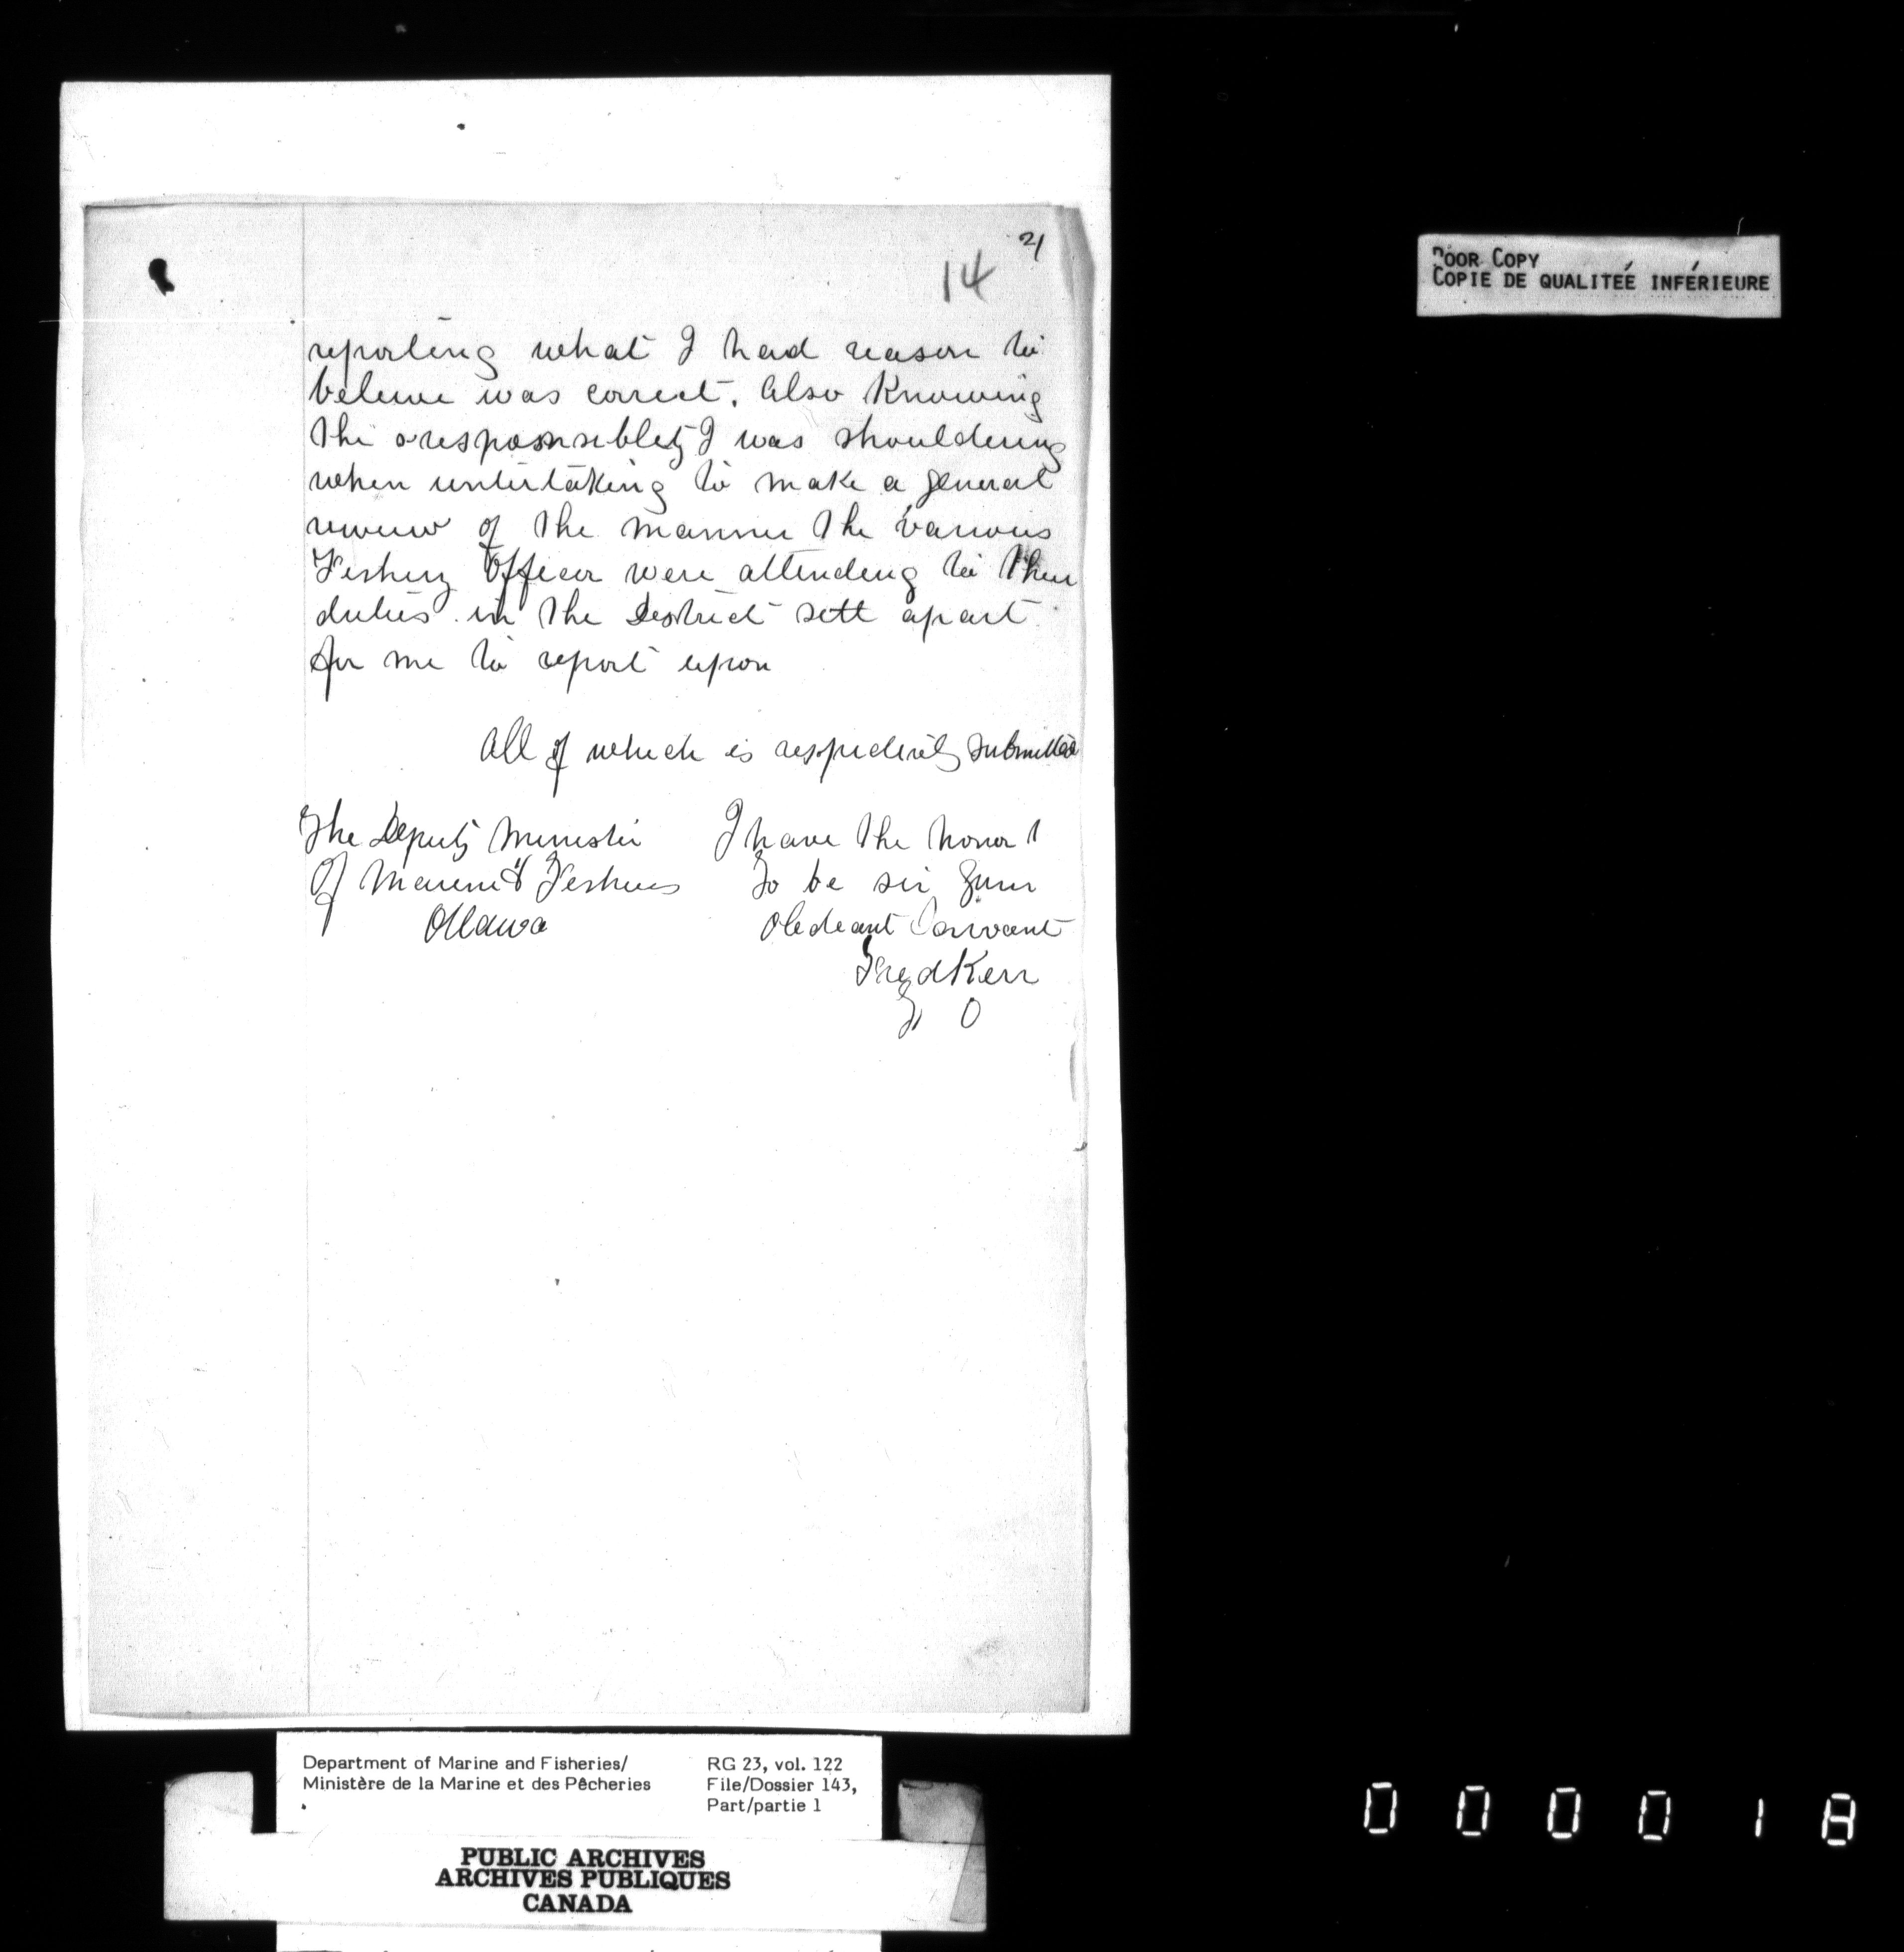 21
14
reporting what I had reason to
beleive was correct. Also Knowing
the responsiblety I was shouldering
when undertaking to make a general
review of the manner the various
Fishery Officer were attending to their
duties in the District sett apart
for me to report upon
All of which is respectively submitted
The Deputy Minister
Of Marine & Fisheries
Ottawa
I have the honor
To be sir your
Obedeant Servant
Fred Kerr
F O
POOR COPY
COPIE DE QUALITÉE INFÉRIEURE
Department of Marine and Fisheries/
Ministère de la Marine et des Pêcheries
RG 23, vol. 122
File/Dossier 143,
Part/partie 1
PUBLIC ARCHIVES
ARCHIVES PUBLIQUES
CANADA
000018